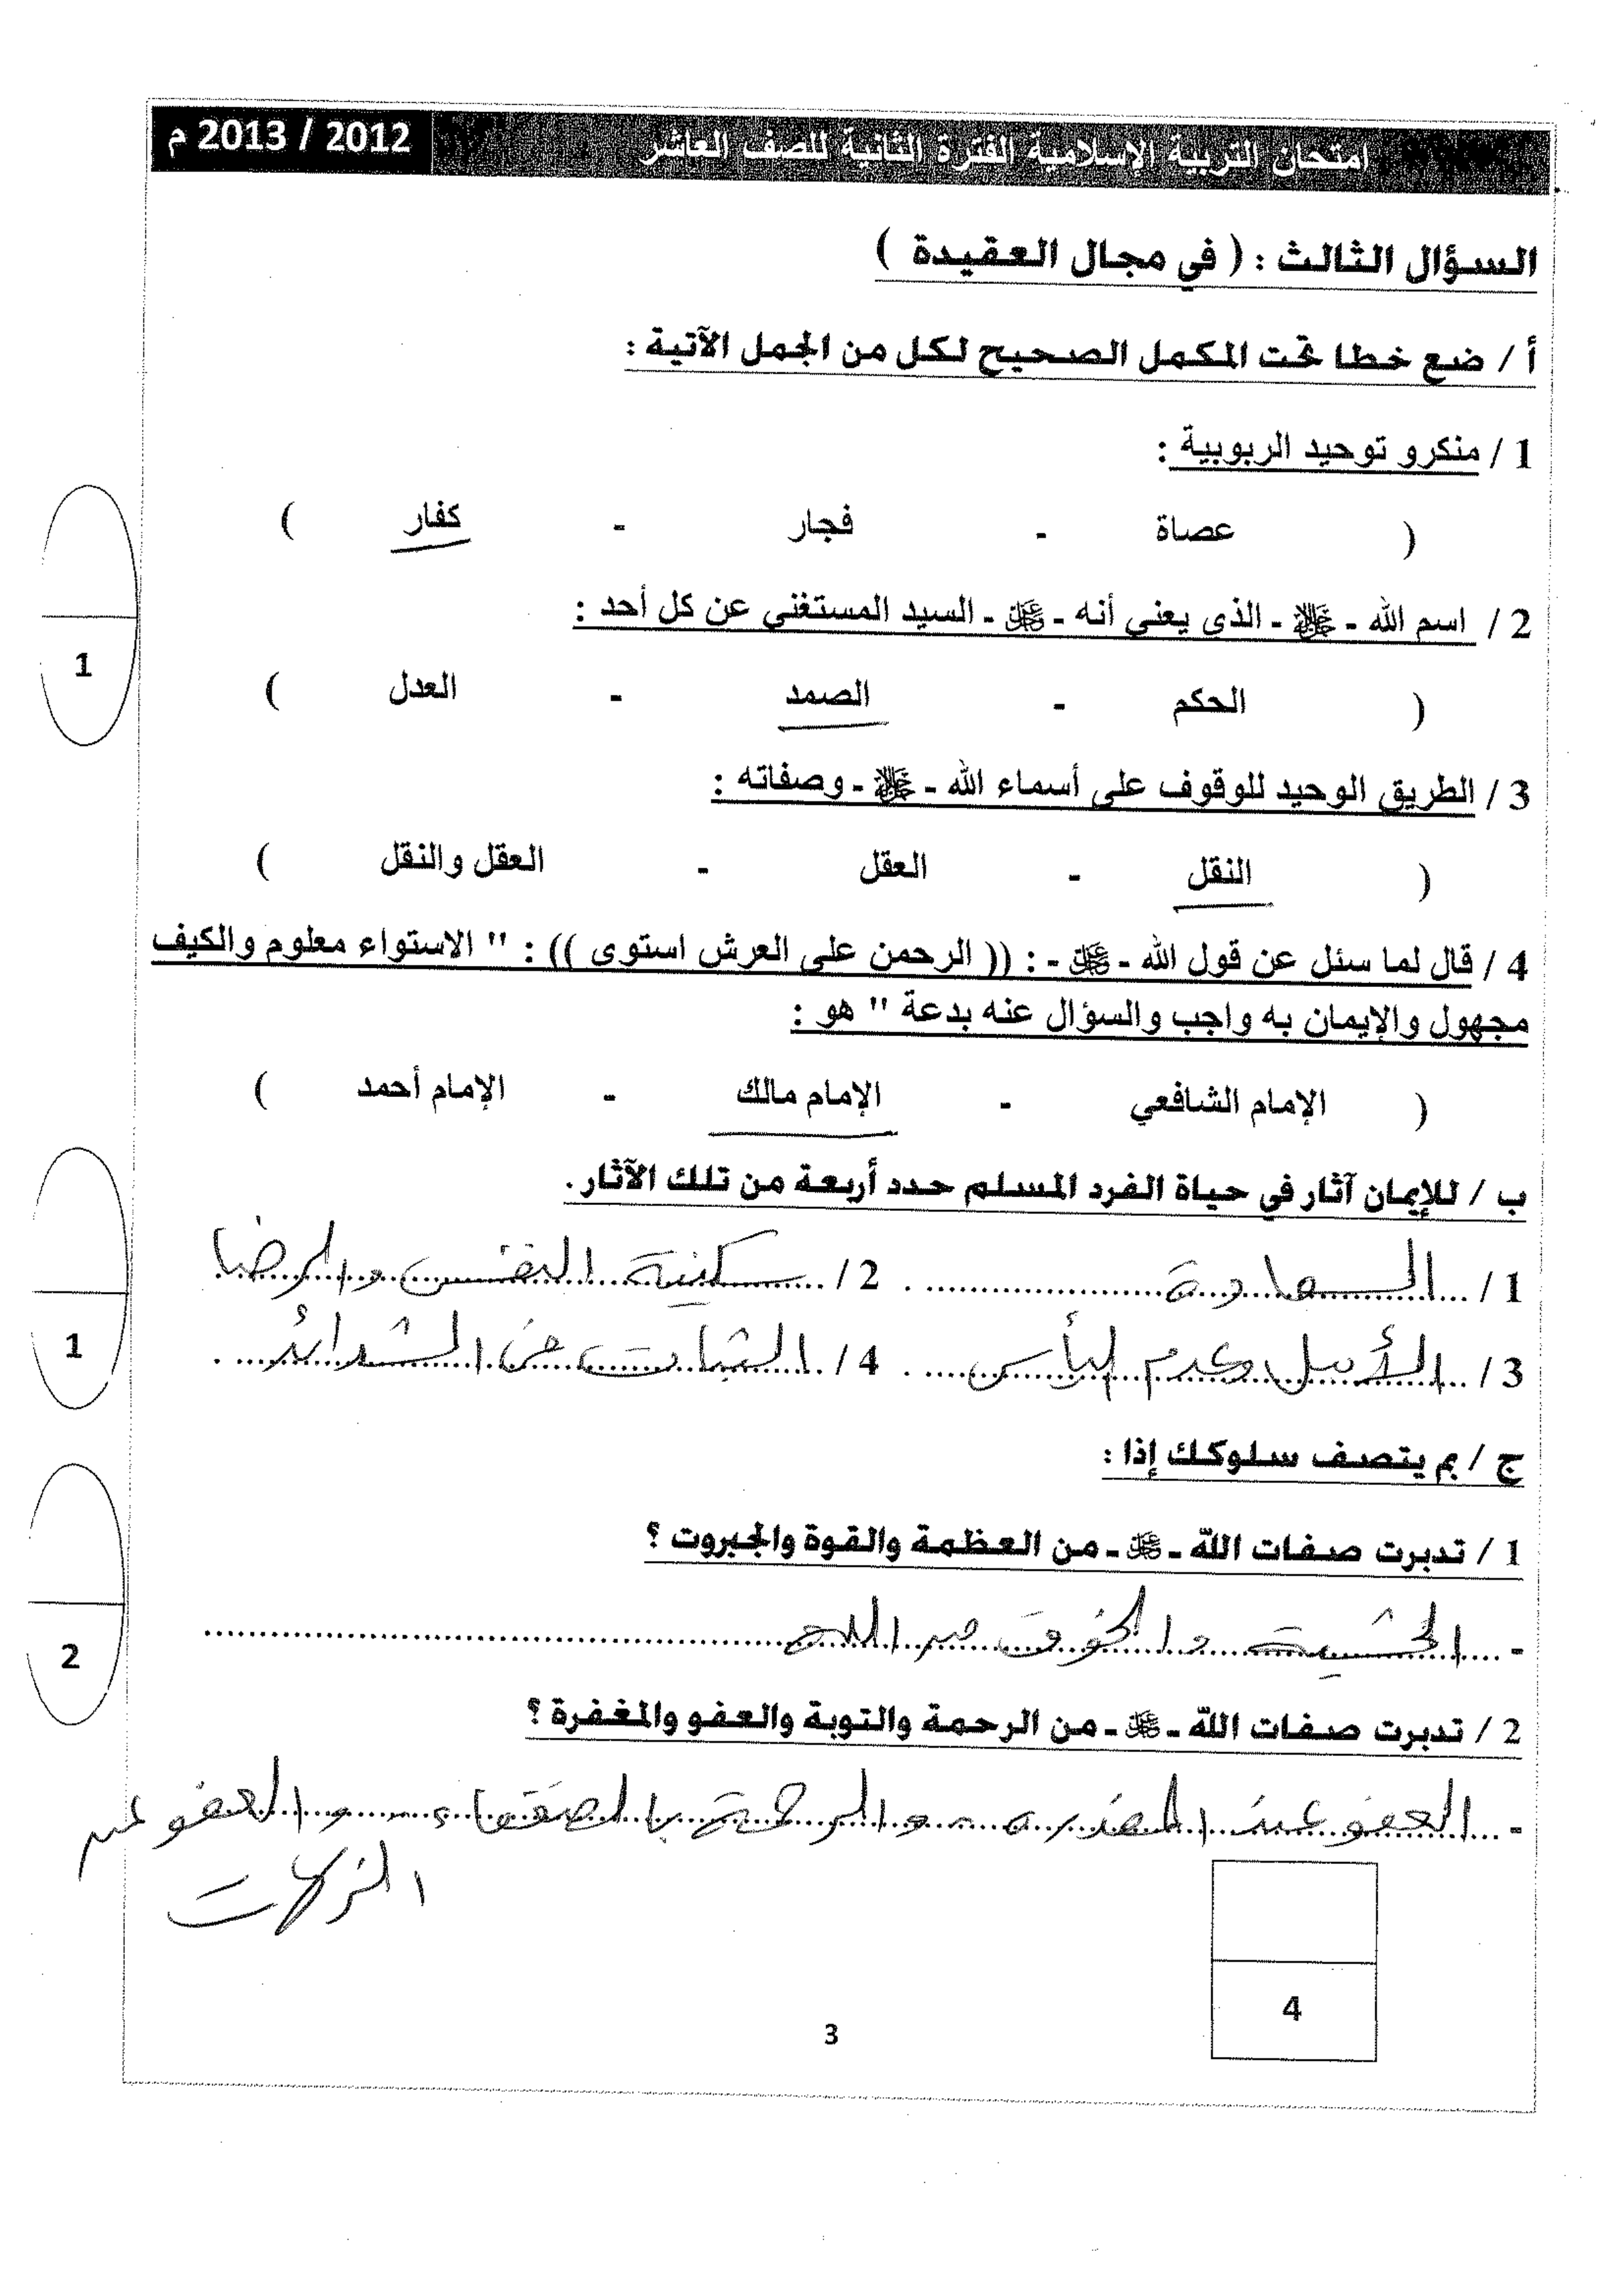 امتحان التربية الإسلامية الفترة الثانية للصف العاشر 2012 / 2013 م
السؤال الثالث : ( في مجال العقيدة )
أ / ضع خطا تحت المكمل الصحيح لكل من الجمل الآتية :
1 / منكرو توحيد الربوبية :
( عصاة - فجار - كفار )
2 / اسم الله - ﷻ - الذي يعني أنه - ﷻ - السيد المستغني عن كل أحد :
( الحكم - الصمد - العدل )
1
3 / الطريق الوحيد للوقوف على أسماء الله - ﷻ - وصفاته :
( النقل - العقل - العقل والنقل )
4 / قال لما سئل عن قول الله - ﷻ - : (( الرحمن على العرش استوى )) : " الاستواء معلوم والكيف
مجهول والإيمان به واجب والسؤال عنه بدعة " هو :
( الإمام الشافعي - الإمام مالك - الإمام أحمد )
ب / للإيمان آثار في حياة الفرد المسلم حدد أربعة من تلك الآثار .
1 / السعادة . 2 / سكينة النفس والرضا
3 / الأمل وعدم اليأس . 4 / الثبات عن الشدائد .
1
ج / بم يتصف سلوكك إذا :
1 / تدبرت صفات الله - ﷻ - من العظمة والقوة والجبروت ؟
- الخشية والخوف من الله
2
2 / تدبرت صفات الله - ﷻ - من الرحمة والتوبة والعفو والمغفرة ؟
- العفو عند المقدرة - والرحمة بالضعفاء - والعفو عن
الزلات
4
3